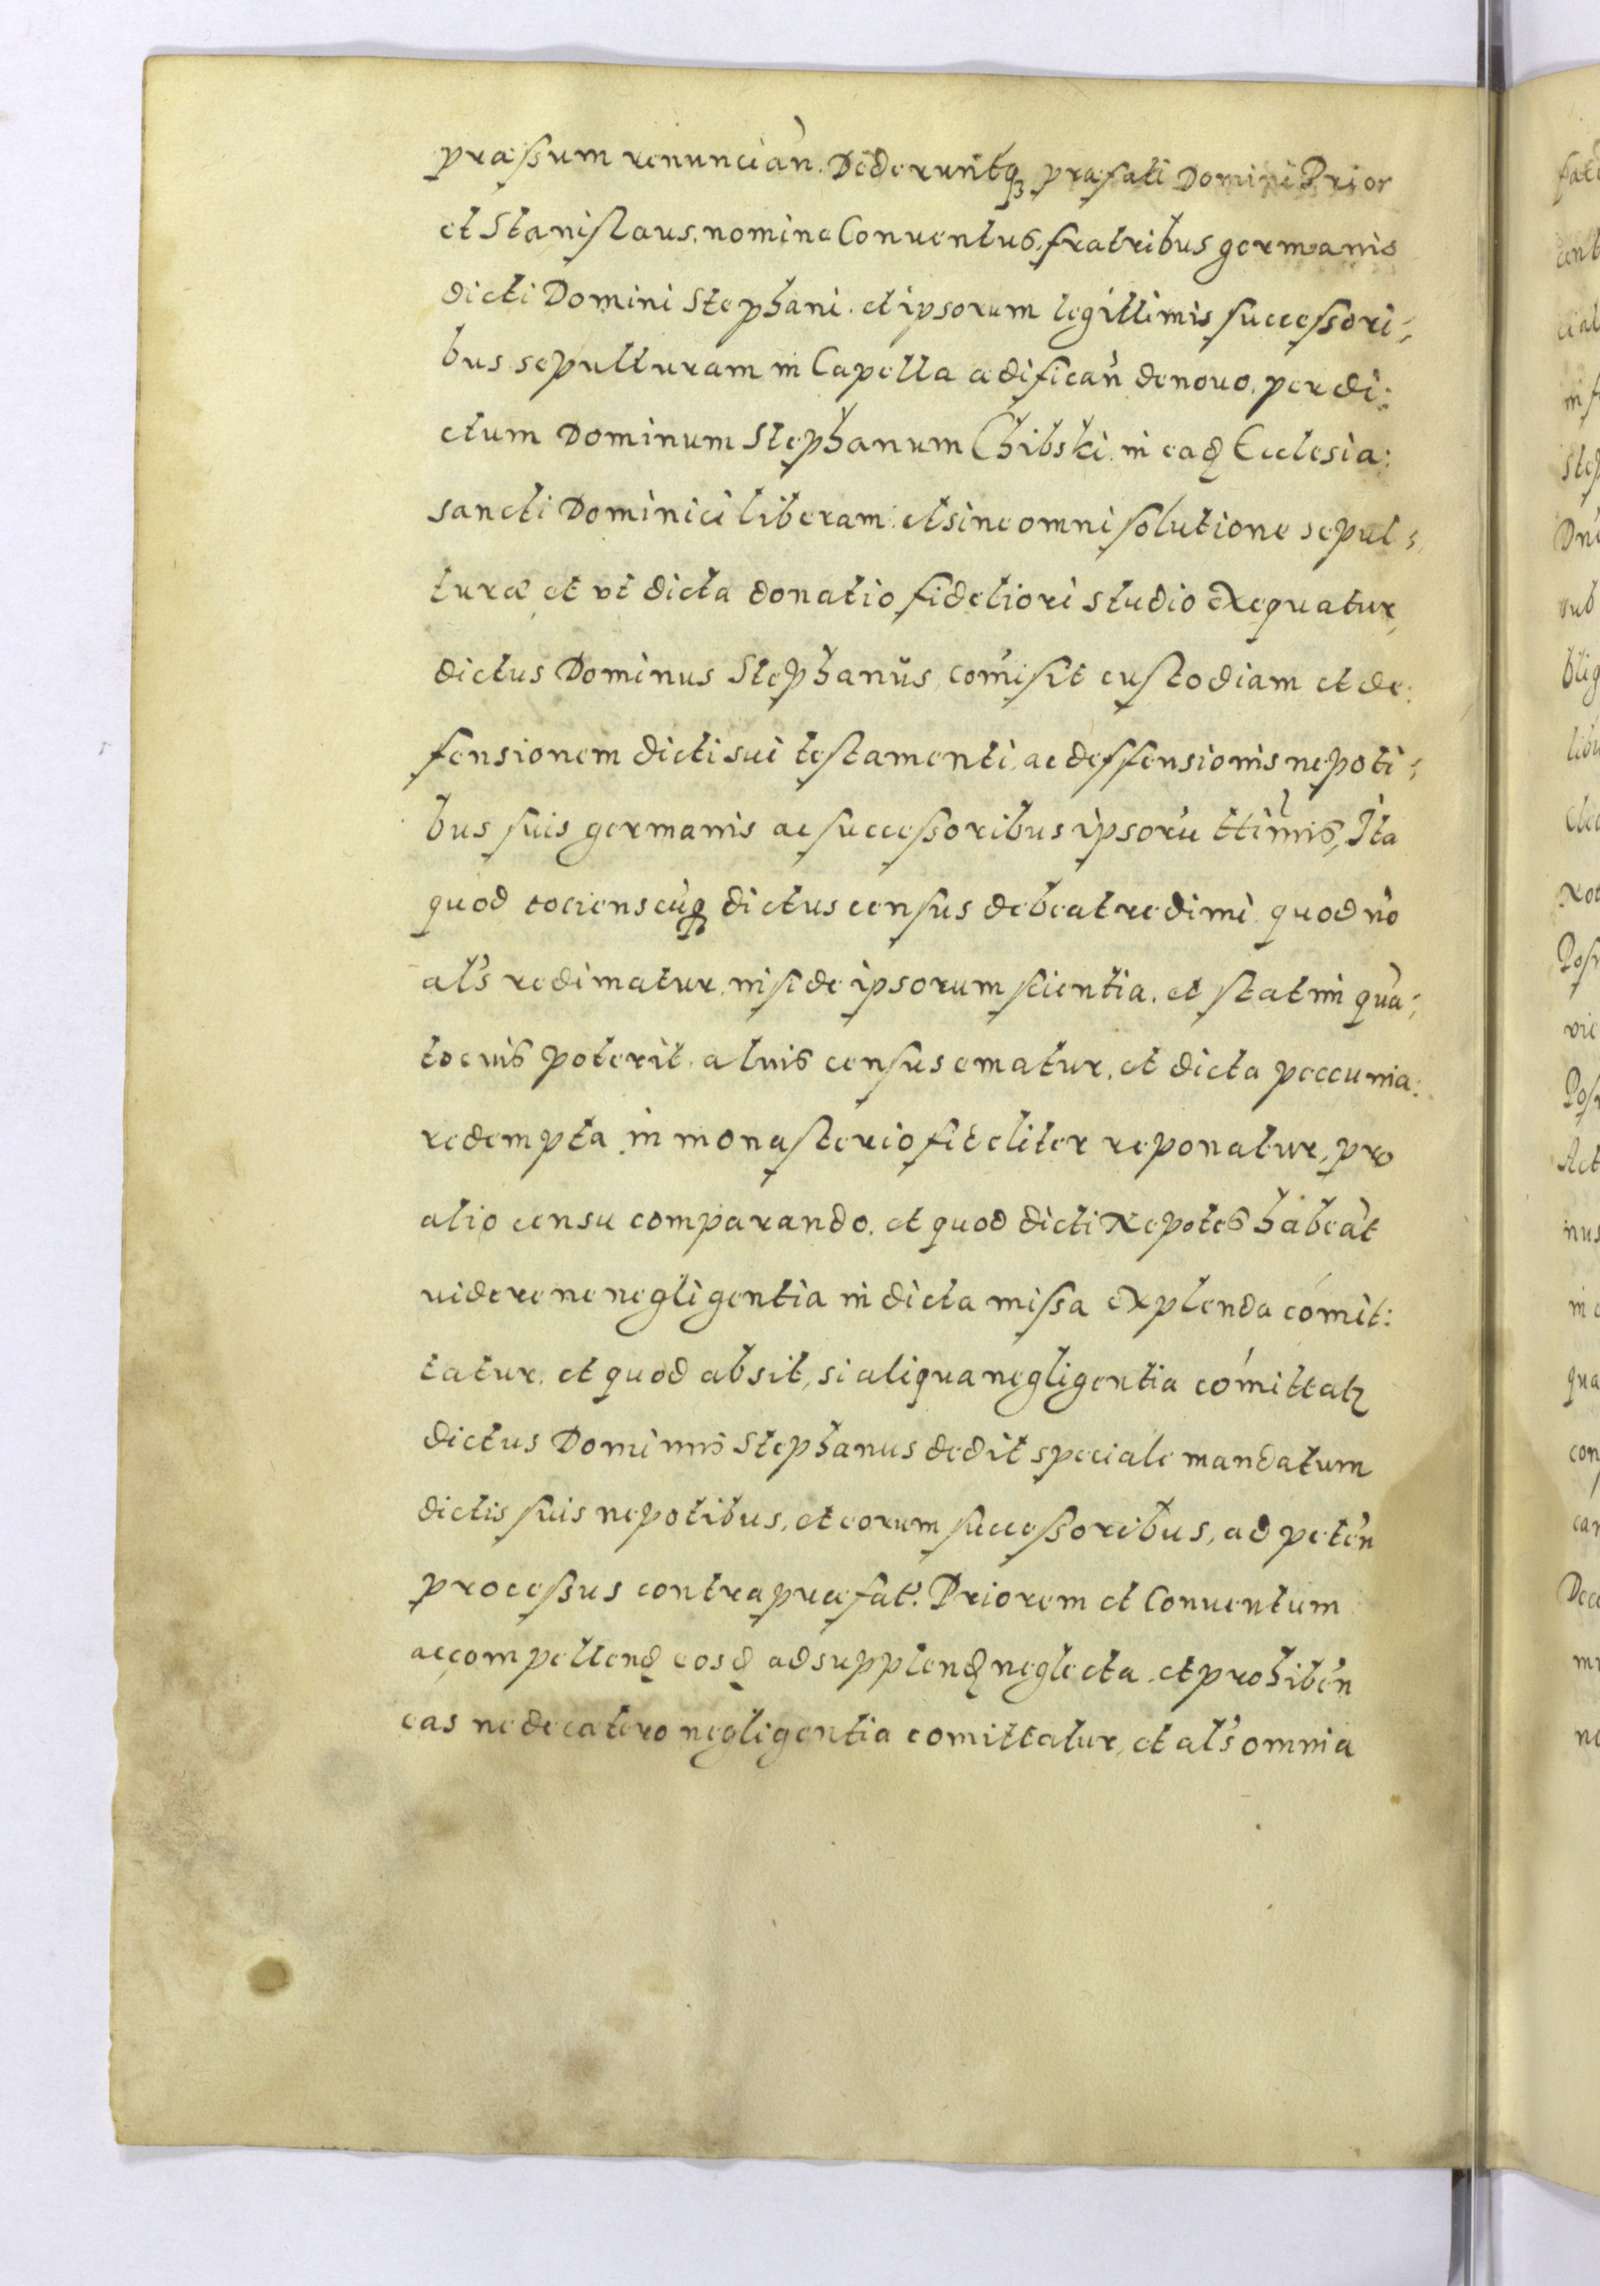 præssum renuncian̄. Dederuntq₃ præfati Domini Prior
et Stanislaus, nomine Conuentus, fratribus germanis
dicti Domini Stephani. et ipsorum legittimis successori
bus sepulturam in Capella ædifican̄ denouo, per di:
ctum Dominum Stephanum Chibski in eadꝫ Ecclesia:
sancti Dominici liberam et sine omni solutione sepul
turæ et vt dicta donatio fideliori studio exequatur,
dictus Dominus Stephanus, com̄isit custodiam et de:
fensionem dicti sui testamenti, ac deffensionis nepoti
bus suis germanis ac successoribus ipsorū ttimis, Ita
quod tociens cuq₃ dictus census debeat redimi quod nō
als redimatur, nisi de ipsorum scientia. et statim quā
tocius poterit, alius census ematur, et dicta peccunia:
redempta in monasterio fideliter reponatur, pro
alio censu comparando. et quod dicti Nepotes habeāt
uidere ne negligentia in dicta missa explenda com̄it:
tatur. et quod absit, si aliqua negligentia com̄ittatꝫ
dictus Dominus Stephanus dedit speciale mandatum
dictis suis nepotibus, et eorum successoribus, ad peten̄
processus contra præfat: Priorem et Conuentum
ac compellendꝫ eosdꝫ ad supplendꝫ neglecta. et prohiben̄
eas ne de cætero negligentia comittatur, et als omnia